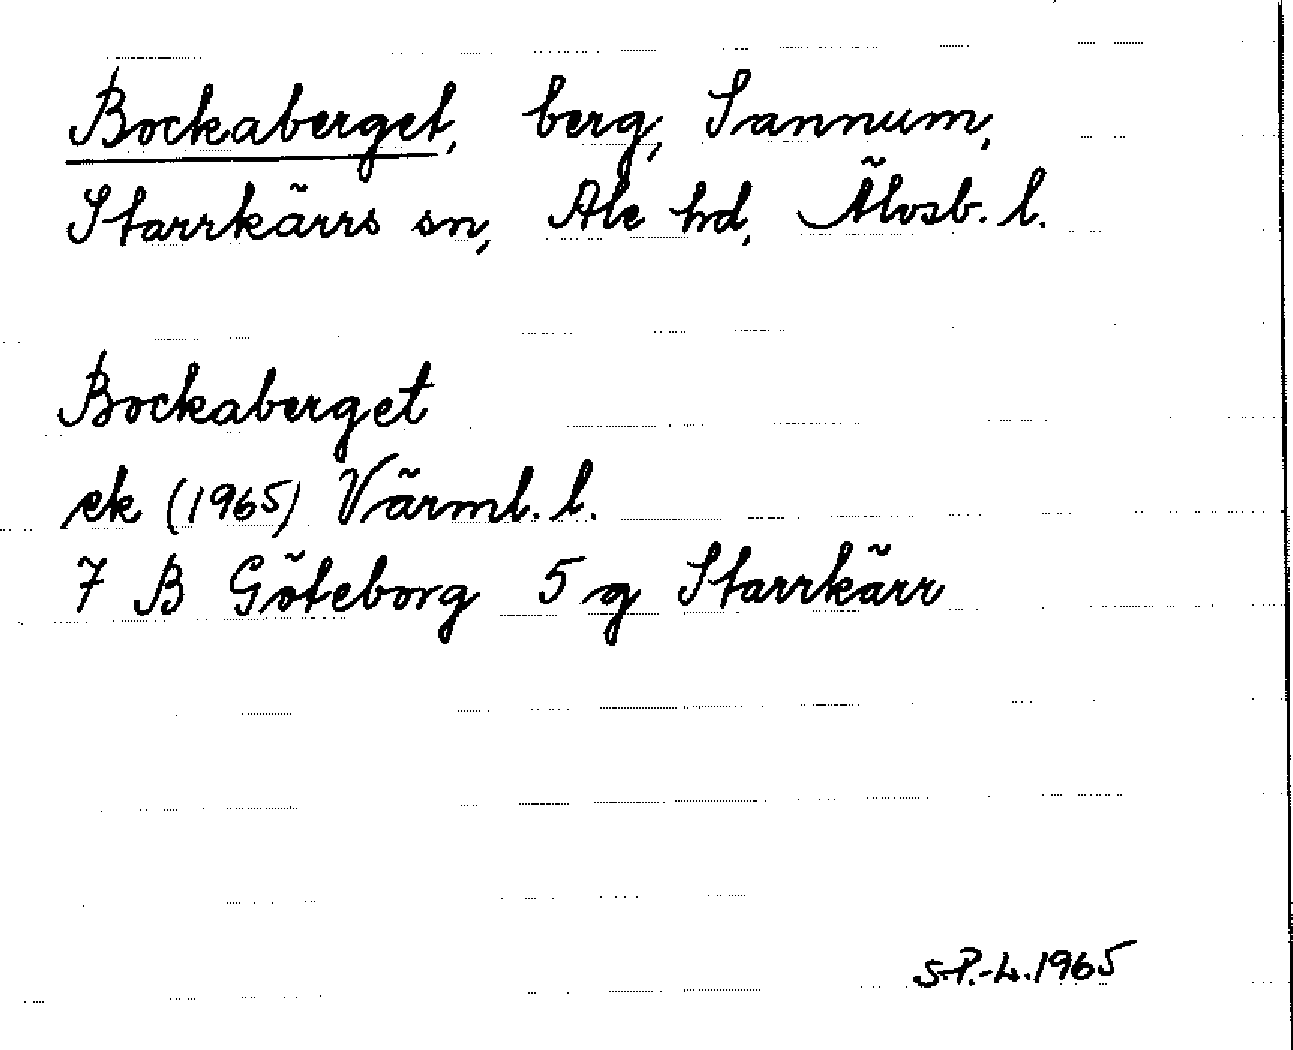 Bockaberget, berg, Sannum,
Starrkärrs sn, Ale hd, Älvsb. l.
Bockaberget
ek (1965) Värml. l.
7 B Göteborg 5 g Starrkärr
S.P.-L. 1965